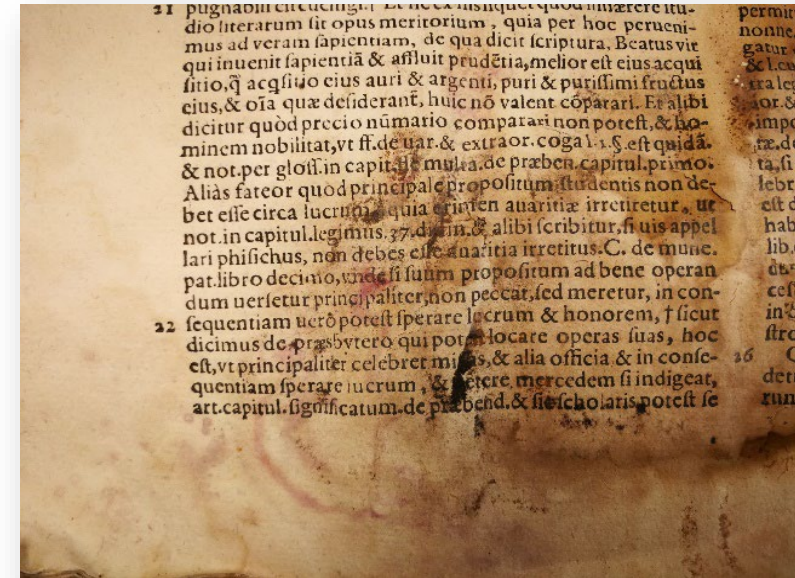 21
dio literarum sit opus meritorium, quia per hoc perueni-
mus ad veram sapientiam, de qua dicit scriptura, Beatus vir
qui inuenit sapientiā & affluit prudētia, melior est eius acqui
sitio, q̄ acq̄sitio eius auri & argenti, puri & purissimi fructus
eius, & oīa quæ desiderant̄, huic nō valent cōparari. Et alibi
dicitur quòd precio nūmario comparari non potest, & ho-
minem nobilitat, vt ff. de uar. & extraor. cog. l. 1. §. est quidā.
& not. per gloss. in capit. de multa. de præben. capitul. primo.
Aliàs fateor quod principale propositum studentis non de-
bet esse circa lucrum, quia crimen auaritiæ irretiretur, ut
not. in capitul. legimus. 37. distin. & alibi scribitur, si uis appel
lari phisichus, non debes esse auaritia irretitus. C. de mune.
pat. libro decimo, vnde si suum propositum ad bene operan
dum uersetur principaliter, non peccat, sed meretur, in con-
22 sequentiam uerò potest sperare lucrum & honorem, † sicut
dicimus de præsbytero qui potest locare operas suas, hoc
est, vt principaliter celebret missas, & alia officia & in conse-
quentiam sperare lucrum, & petere mercedem si indigeat,
art. capitul. significatum. de præbend. & sic scholaris potest se
permit
nonne
gatur
& l.
tra leg
ior. &
impo
ta, si
lebr
est d
hab
lib.
ces
in
stro
26
det
run